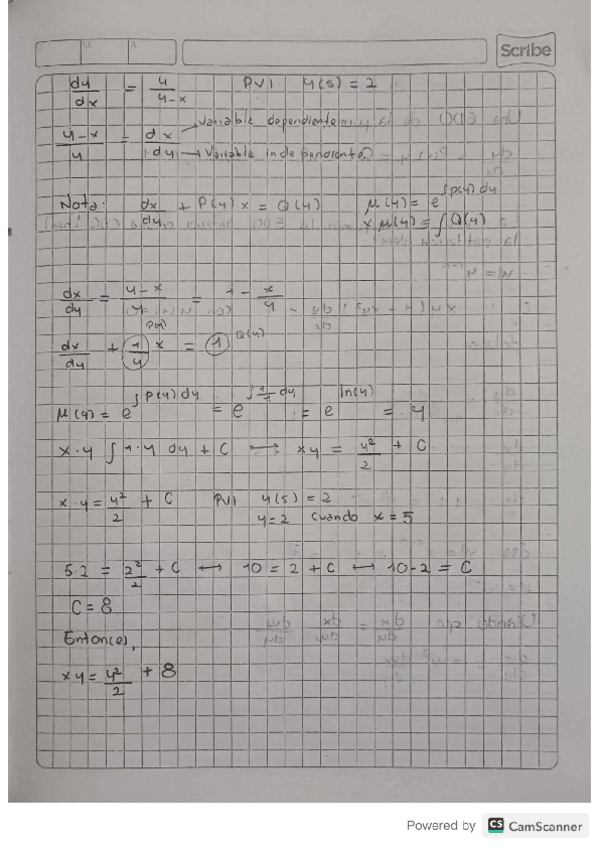 D M A Scribe
dy/dx = y/(y-x) PVI y(5) = 2
(y-x)/y = dx/dy → variable dependiente
→ variable independiente
Nota: dx/dy + P(y) x = Q(y) μ(y) = e^∫p(y) dy
x μ(y) = ∫ Q(y)
dx/dy = (y-x)/y = 1 - x/y
P(y) Q(y)
dx/dy + (1/y) x = 1
μ(y) = e^∫P(y) dy = e^∫1/y dy = e^ln(y) = y
x·y ∫ 1·y dy + C → xy = y²/2 + C
x·y = y²/2 + C PVI y(5) = 2
y=2 cuando x = 5
5·2 = 2²/2 + C ↔ 10 = 2 + C ↔ 10-2 = C
C = 8
Entonces,
xy = y²/2 + 8
Powered by CS CamScanner